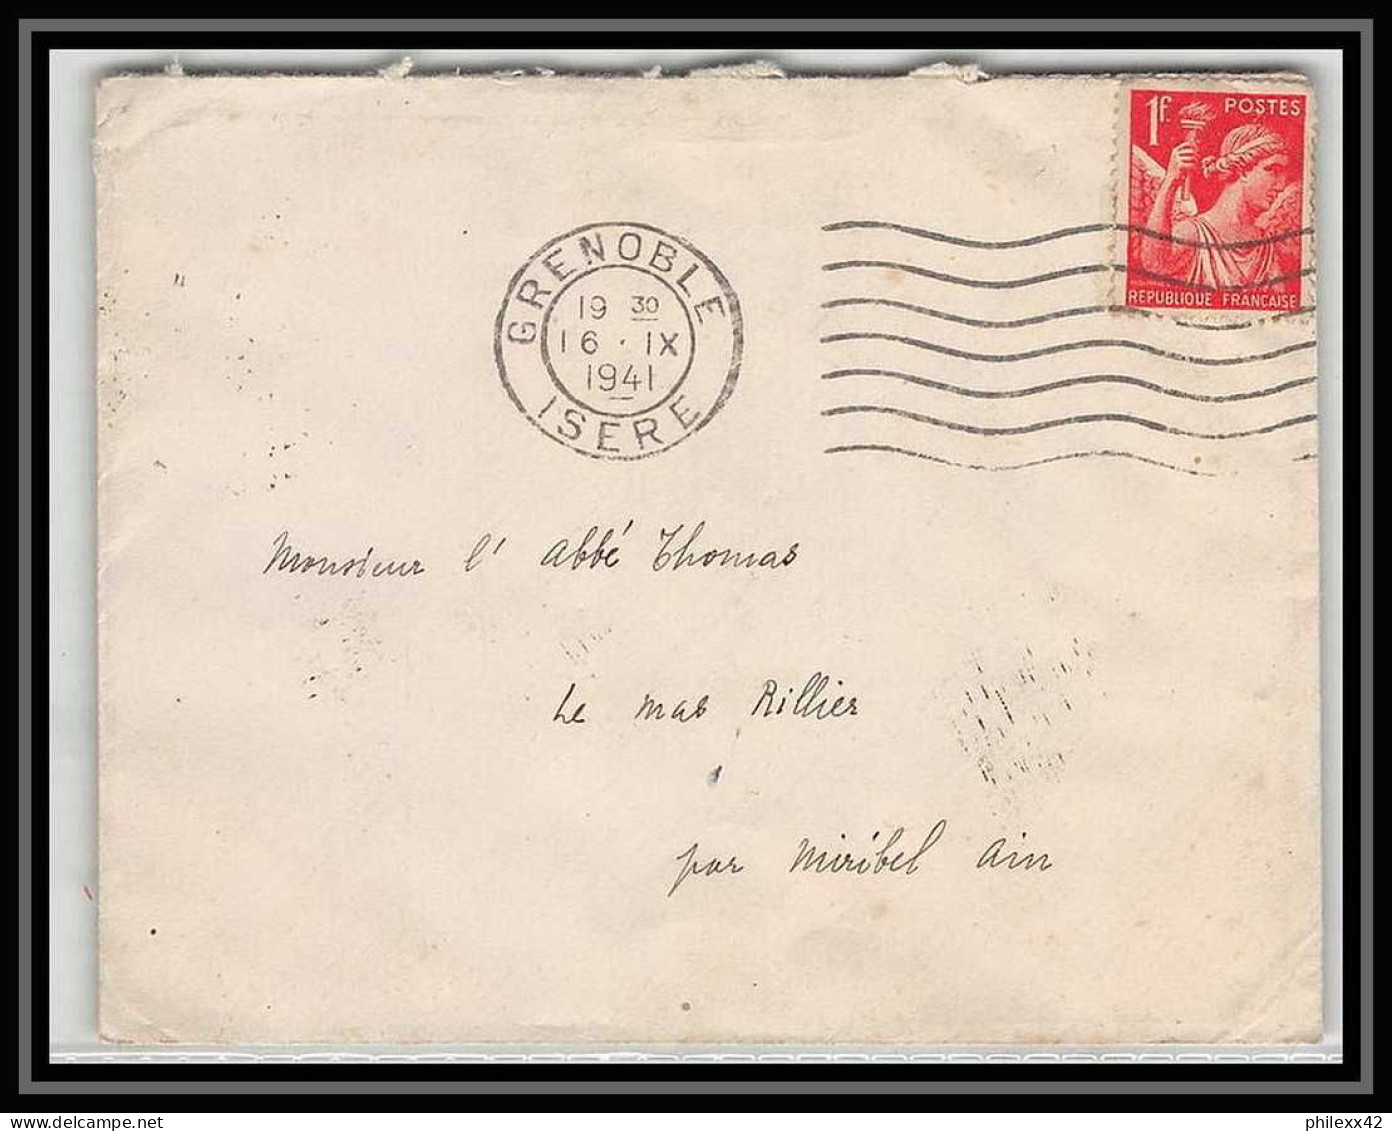 1f. POSTES
REPUBLIQUE FRANÇAISE
GRENOBLE
19 30
16 · IX
1941
ISERE
Monsieur l' abbé Thomas
Le mas Rillier
par Miribel Ain
delcampe.net
philexx42